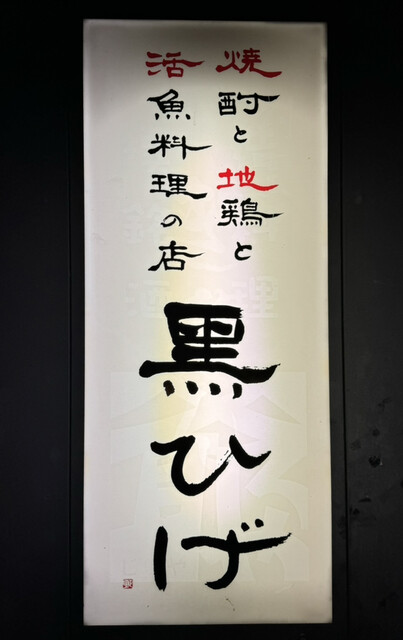 焼酎と地鶏と
活魚料理の店
黒ひげ